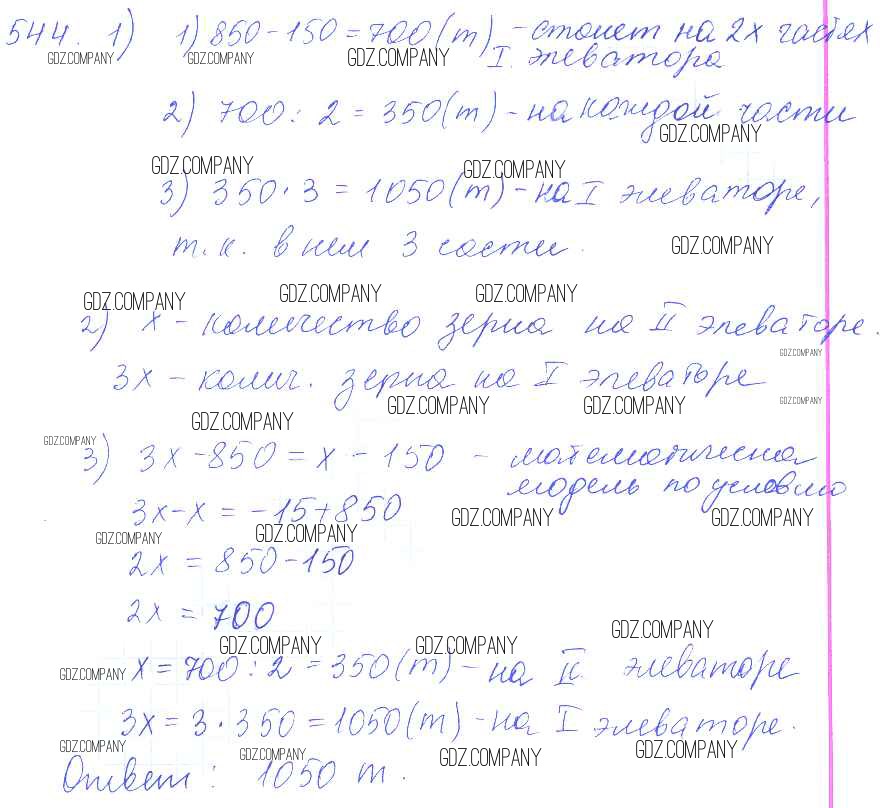 544. 1) 1) 850 - 150 = 700 (т) - станет на 2х частях
GDZ.COMPANY GDZ.COMPANY GDZ.COMPANY I элеватора
2) 700 : 2 = 350 (т) - на каждой части
GDZ.COMPANY
GDZ.COMPANY GDZ.COMPANY
3) 350 · 3 = 1050 (т) - на I элеваторе,
т.к. в нем 3 части. GDZ.COMPANY
GDZ.COMPANY GDZ.COMPANY GDZ.COMPANY
2) x - количество зерна на II элеваторе.
GDZ.COMPANY
3x - колич. зерна на I элеваторе
GDZ.COMPANY GDZ.COMPANY GDZ.COMPANY
GDZ.COMPANY
GDZ.COMPANY
3) 3x - 850 = x - 150 - математическая
модель по условию
3x - x = -15 + 850
GDZ.COMPANY GDZ.COMPANY
GDZ.COMPANY GDZ.COMPANY
2x = 850 - 150
2x = 700
GDZ.COMPANY
GDZ.COMPANY GDZ.COMPANY
GDZ.COMPANY x = 700 : 2 = 350 (т) - на II элеваторе
3x = 3 · 350 = 1050 (т) - на I элеваторе.
GDZ.COMPANY GDZ.COMPANY GDZ.COMPANY GDZ.COMPANY
Ответ: 1050 т.